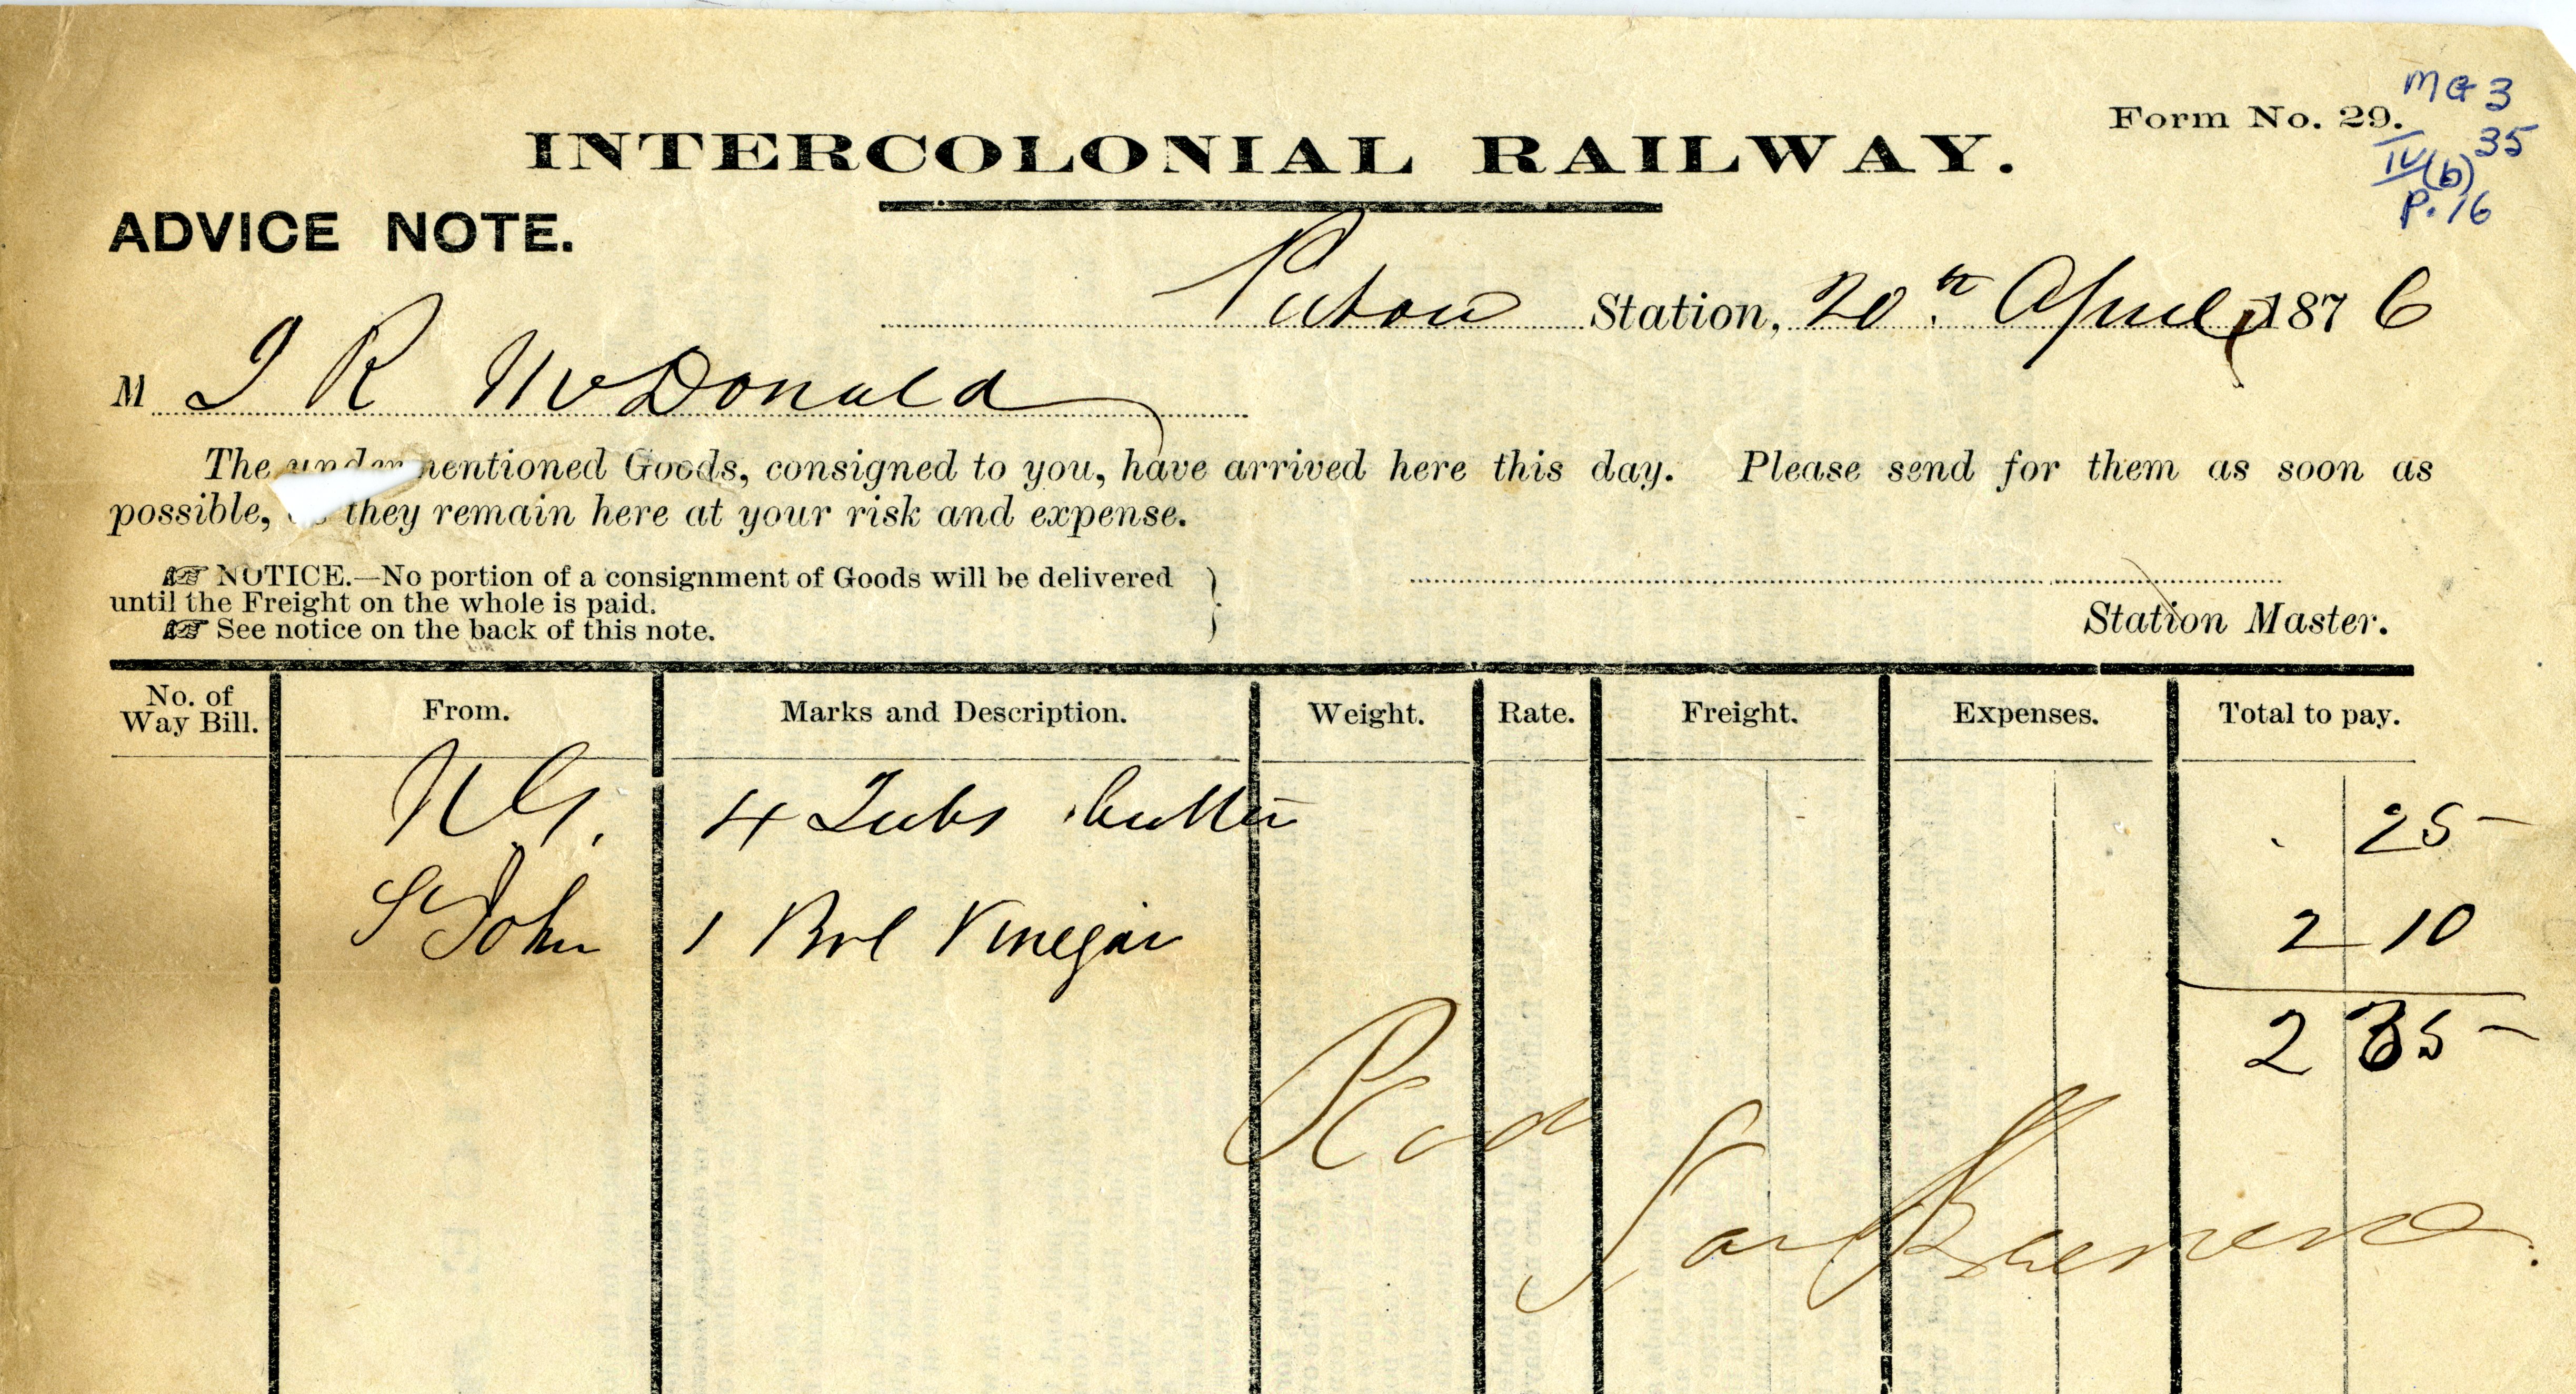 Form No. 29.
MG 3
35
IV(b)
P. 16
INTERCOLONIAL RAILWAY.
ADVICE NOTE.
Pictou Station, 20th April, 1876
M J R McDonald
The under mentioned Goods, consigned to you, have arrived here this day. Please send for them as soon as
possible, as they remain here at your risk and expense.
☞ NOTICE.—No portion of a consignment of Goods will be delivered
until the Freight on the whole is paid.
☞ See notice on the back of this note.
Station Master.
No. of Way Bill. From. Marks and Description. Weight. Rate. Freight. Expenses. Total to pay.
N G. 4 Tubs butter 25
St John 1 Brl Vinegar 2 10
2 35